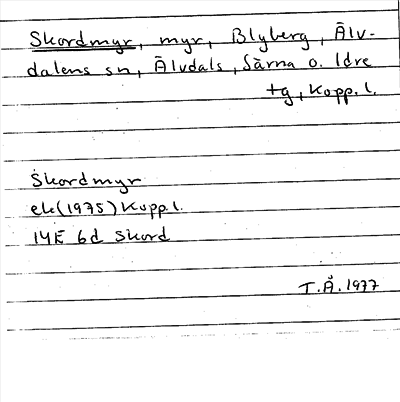 Skordmyr, myr, Blyberg, Älv-
dalens sn, Älvdals, Särna o. Idre
tg, Kopp. l.
Skordmyr
ek (1975) Kopp l.
14E 6d Skord
T.Å. 1977